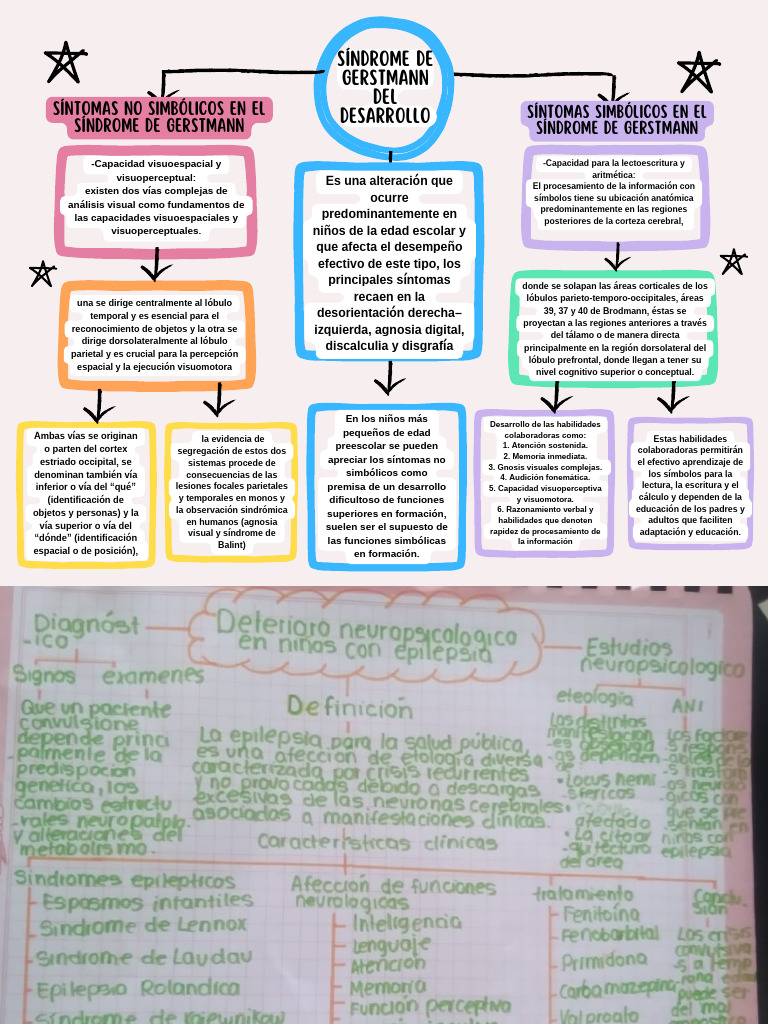 SÍNDROME DE
GERSTMANN
DEL
DESARROLLO
SÍNTOMAS NO SIMBÓLICOS EN EL
SÍNDROME DE GERSTMANN
-Capacidad visuoespacial y
visuoperceptual:
existen dos vías complejas de
análisis visual como fundamentos de
las capacidades visuoespaciales y
visuoperceptuales.
una se dirige centralmente al lóbulo
temporal y es esencial para el
reconocimiento de objetos y la otra se
dirige dorsolateralmente al lóbulo
parietal y es crucial para la percepción
espacial y la ejecución visuomotora
Ambas vías se originan
o parten del cortex
estriado occipital, se
denominan también vía
inferior o vía del “qué”
(identificación de
objetos y personas) y la
vía superior o vía del
“dónde” (identificación
espacial o de posición),
la evidencia de
segregación de estos dos
sistemas procede de
consecuencias de las
lesiones focales parietales
y temporales en monos y
la observación sindrómica
en humanos (agnosia
visual y síndrome de
Balint)
Es una alteración que
ocurre
predominantemente en
niños de la edad escolar y
que afecta el desempeño
efectivo de este tipo, los
principales síntomas
recaen en la
desorientación derecha–
izquierda, agnosia digital,
discalculia y disgrafía
En los niños más
pequeños de edad
preescolar se pueden
apreciar los síntomas no
simbólicos como
premisa de un desarrollo
dificultoso de funciones
superiores en formación,
suelen ser el supuesto de
las funciones simbólicas
en formación.
SÍNTOMAS SIMBÓLICOS EN EL
SÍNDROME DE GERSTMANN
-Capacidad para la lectoescritura y
aritmética:
El procesamiento de la información con
símbolos tiene su ubicación anatómica
predominantemente en las regiones
posteriores de la corteza cerebral,
donde se solapan las áreas corticales de los
lóbulos parieto-temporo-occipitales, áreas
39, 37 y 40 de Brodmann, éstas se
proyectan a las regiones anteriores a través
del tálamo o de manera directa
principalmente en la región dorsolateral del
lóbulo prefrontal, donde llegan a tener su
nivel cognitivo superior o conceptual.
Desarrollo de las habilidades
colaboradoras como:
1. Atención sostenida.
2. Memoria inmediata.
3. Gnosis visuales complejas.
4. Audición fonemática.
5. Capacidad visuoperceptiva
y visuomotora.
6. Razonamiento verbal y
habilidades que denoten
rapidez de procesamiento de
la información
Estas habilidades
colaboradoras permitirán
el efectivo aprendizaje de
los símbolos para la
lectura, la escritura y el
cálculo y dependen de la
educación de los padres y
adultos que faciliten
adaptación y educación.
Deterioro neuropsicologico
en niños con epilepsia
Diagnóst
-ico
Signos examenes
Que un paciente
convulsione
depende princi
-palmente de la
predisposicion
genetica, los
cambios estructu
-rales neuropatolo.
y alteraciones del
metabolismo.
Definición
La epilepsia para la salud pública,
es una afección de etologia diversa
caracterizada por crisis recurrentes
y no provocadas debido a descargas
excesivas de las neuronas cerebrales
asociadas a manifestaciones clinicas.
Caracteristicas clínicas
Estudios
neuropsicologico
eteologia
Las distintas
manifestacion
-es observa
-das dependen
de:
• Locus hemi
-sfericos
afectado
• La citoar
-quitectura
del area
ANI
Los factore
-s respons
-ables de lo
-s trastorn
-os neurolo
-gicos con
que se pre
-sentan en
niños con
epilepsia
Sindromes epilepticos
Espasmos infantiles
Sindrome de Lennox
Sindrome de Laudau
Epilepsia Rolandica
Síndrome de
Afección de funciones
neurologicas
Inteligencia
Lenguaje
Atención
Memoria
Función perceptiva
tratamiento
Fenitoina
Fenobarbital
Primidona
Carbamazepina
Valproato
Conclu-
sion
Las crisis
convulsiva
-s a temp
-rana edad
puede ser
del mal